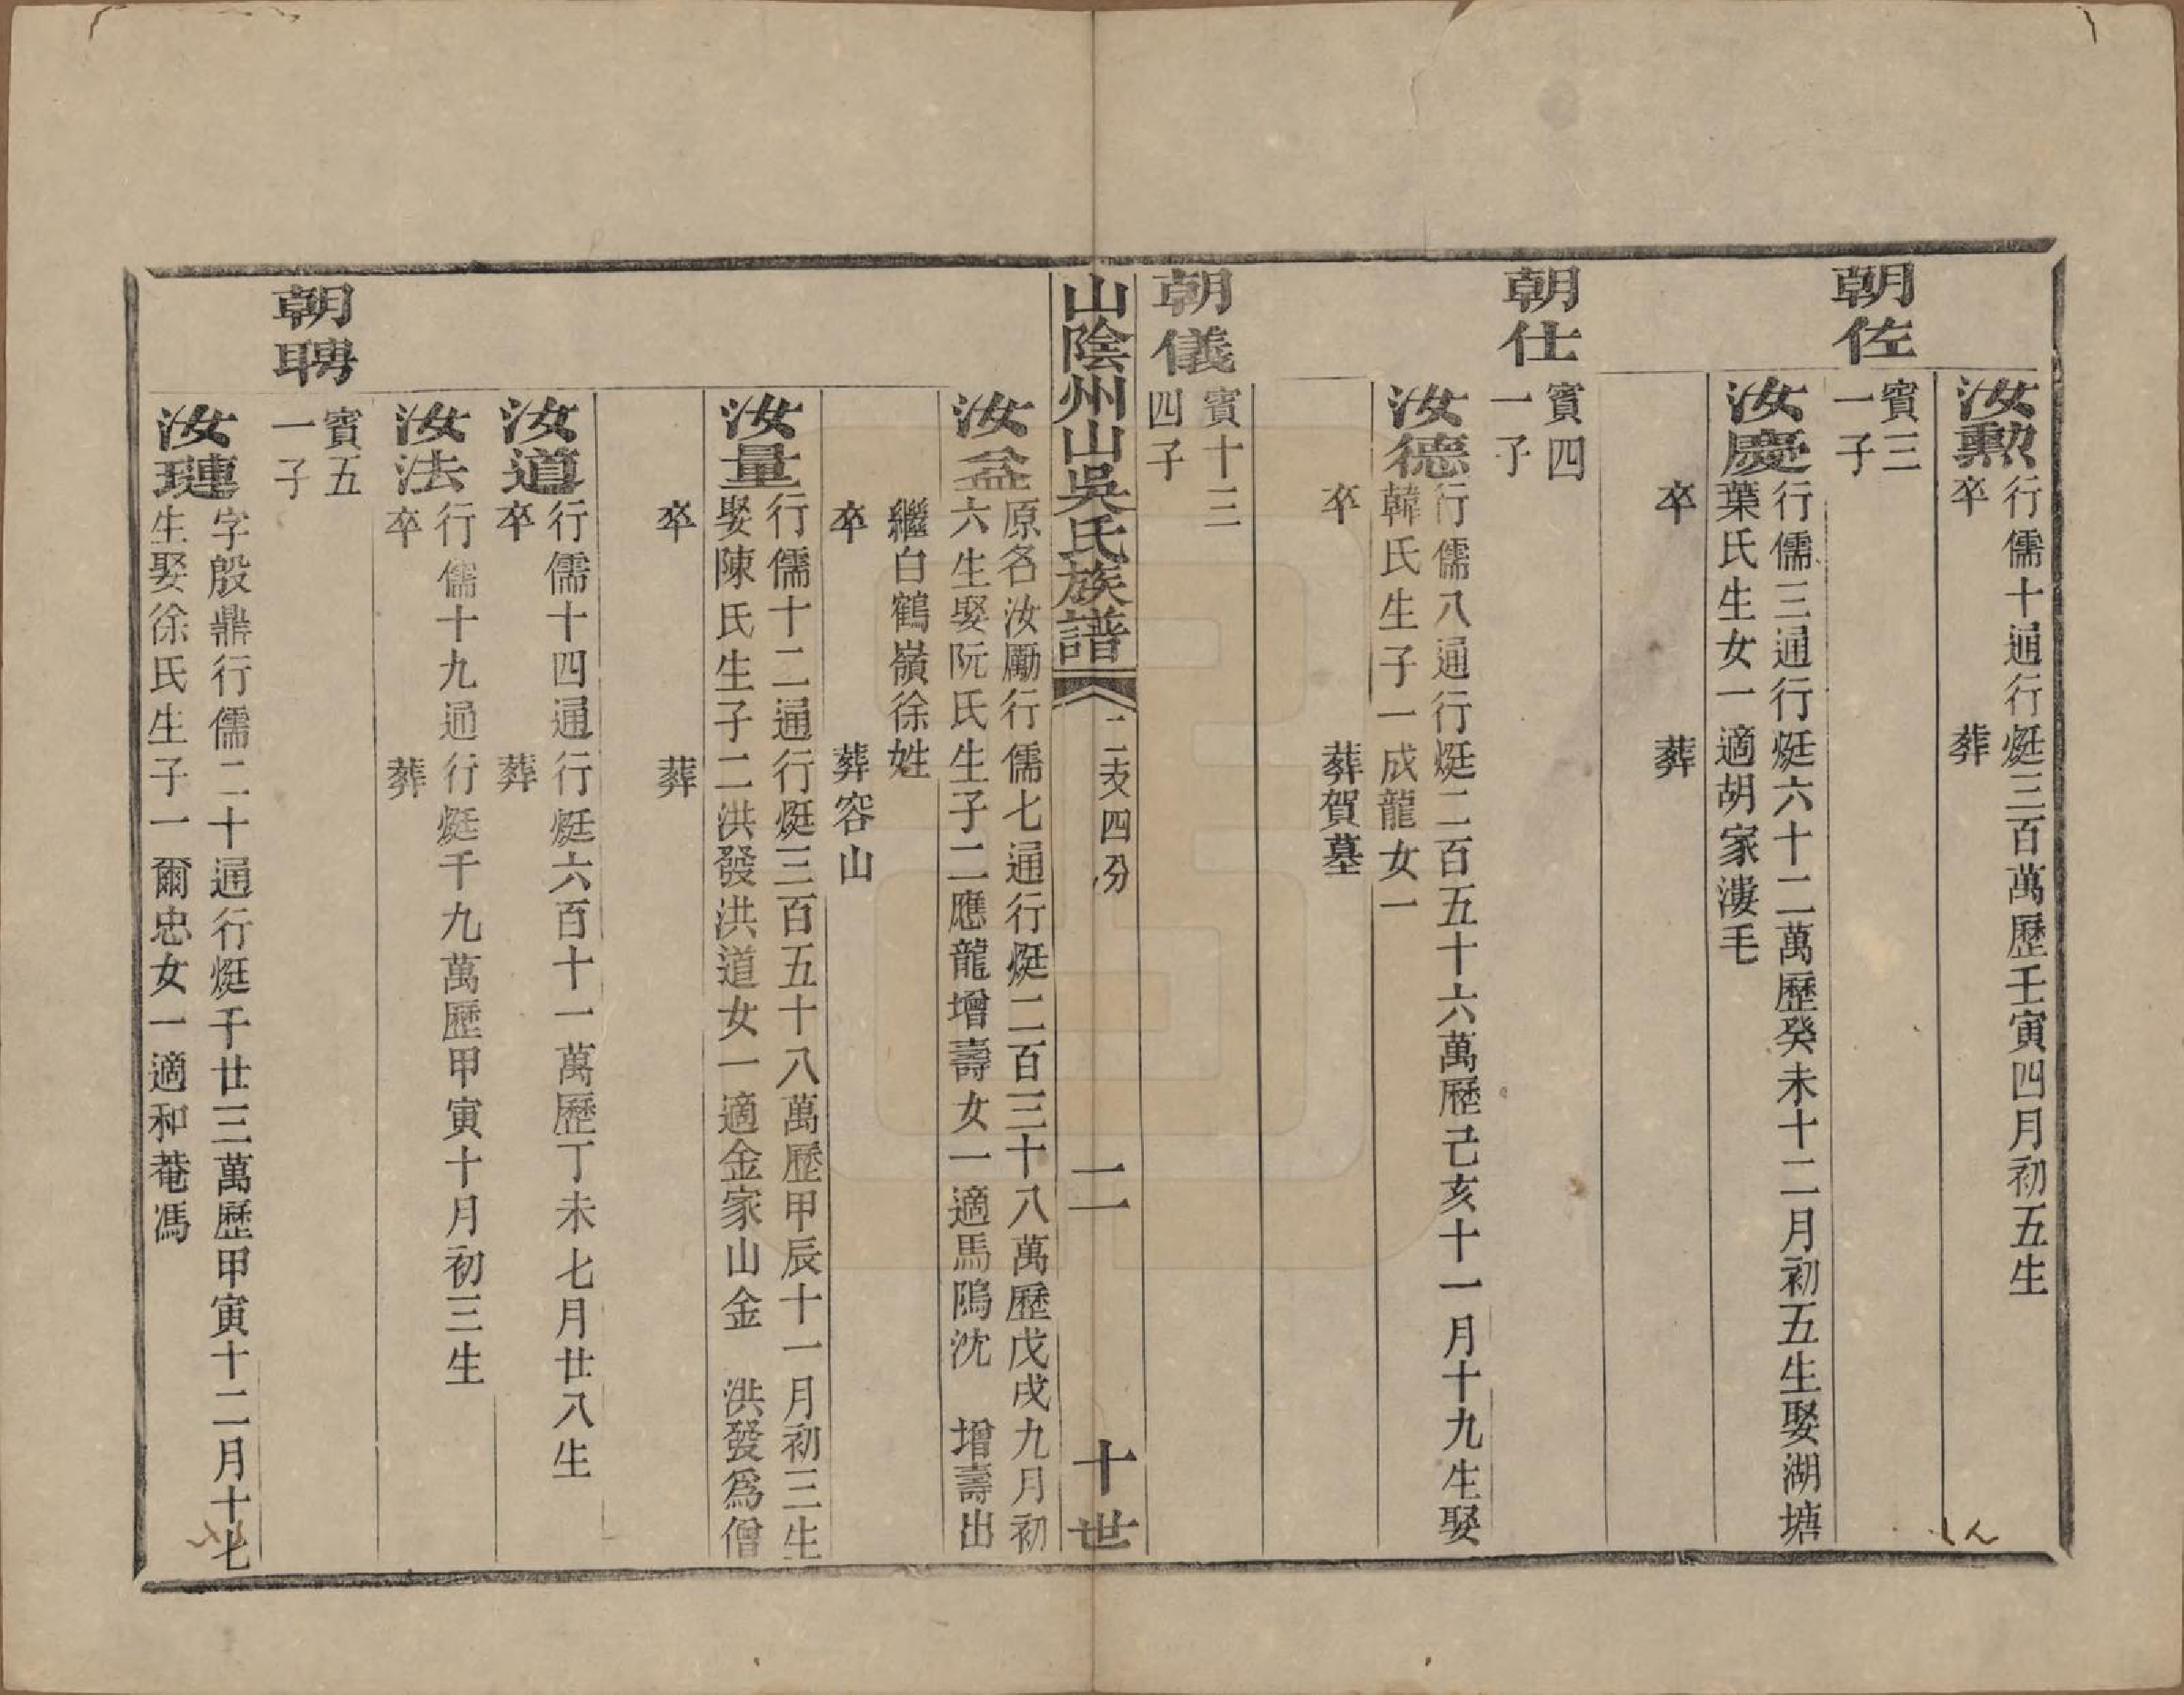 汝勲
行儒十通行烶三百萬歷壬寅四月初五生
卒　葬
朝佐
賓三
一子
汝慶
行儒三通行烶六十二萬歷癸未十二月初五生娶湖塘
葉氏生女一適胡家漊毛
卒　葬
朝仕
賓四
一子
汝德
行儒八通行烶二百五十六萬歷己亥十一月十九生娶
韓氏生子一成龍女一
卒　葬賀墓
朝儀
賓十三
四子
山陰州山吳氏族譜
二支四分
二
十世
汝益
原名汝勵行儒七通行烶二百三十八萬歷戊戌九月初
六生娶阮氏生子二應龍增壽女一適馬隝沈　增壽出
繼白鶴嶺徐姓
卒　葬容山
汝量
行儒十二通行烶三百五十八萬歷甲辰十一月初三生
娶陳氏生子二洪發洪道女一適金家山金　洪發爲僧
卒　葬
汝道
行儒十四通行烶六百十一萬歷丁未七月廿八生
卒　葬
汝法
行儒十九通行烶千九萬歷甲寅十月初三生
卒　葬
朝聘
賓五
一子
汝璉
字殷鼎行儒二十通行烶千廿三萬歷甲寅十二月十七
生娶徐氏生子一爾忠女一適和菴馮